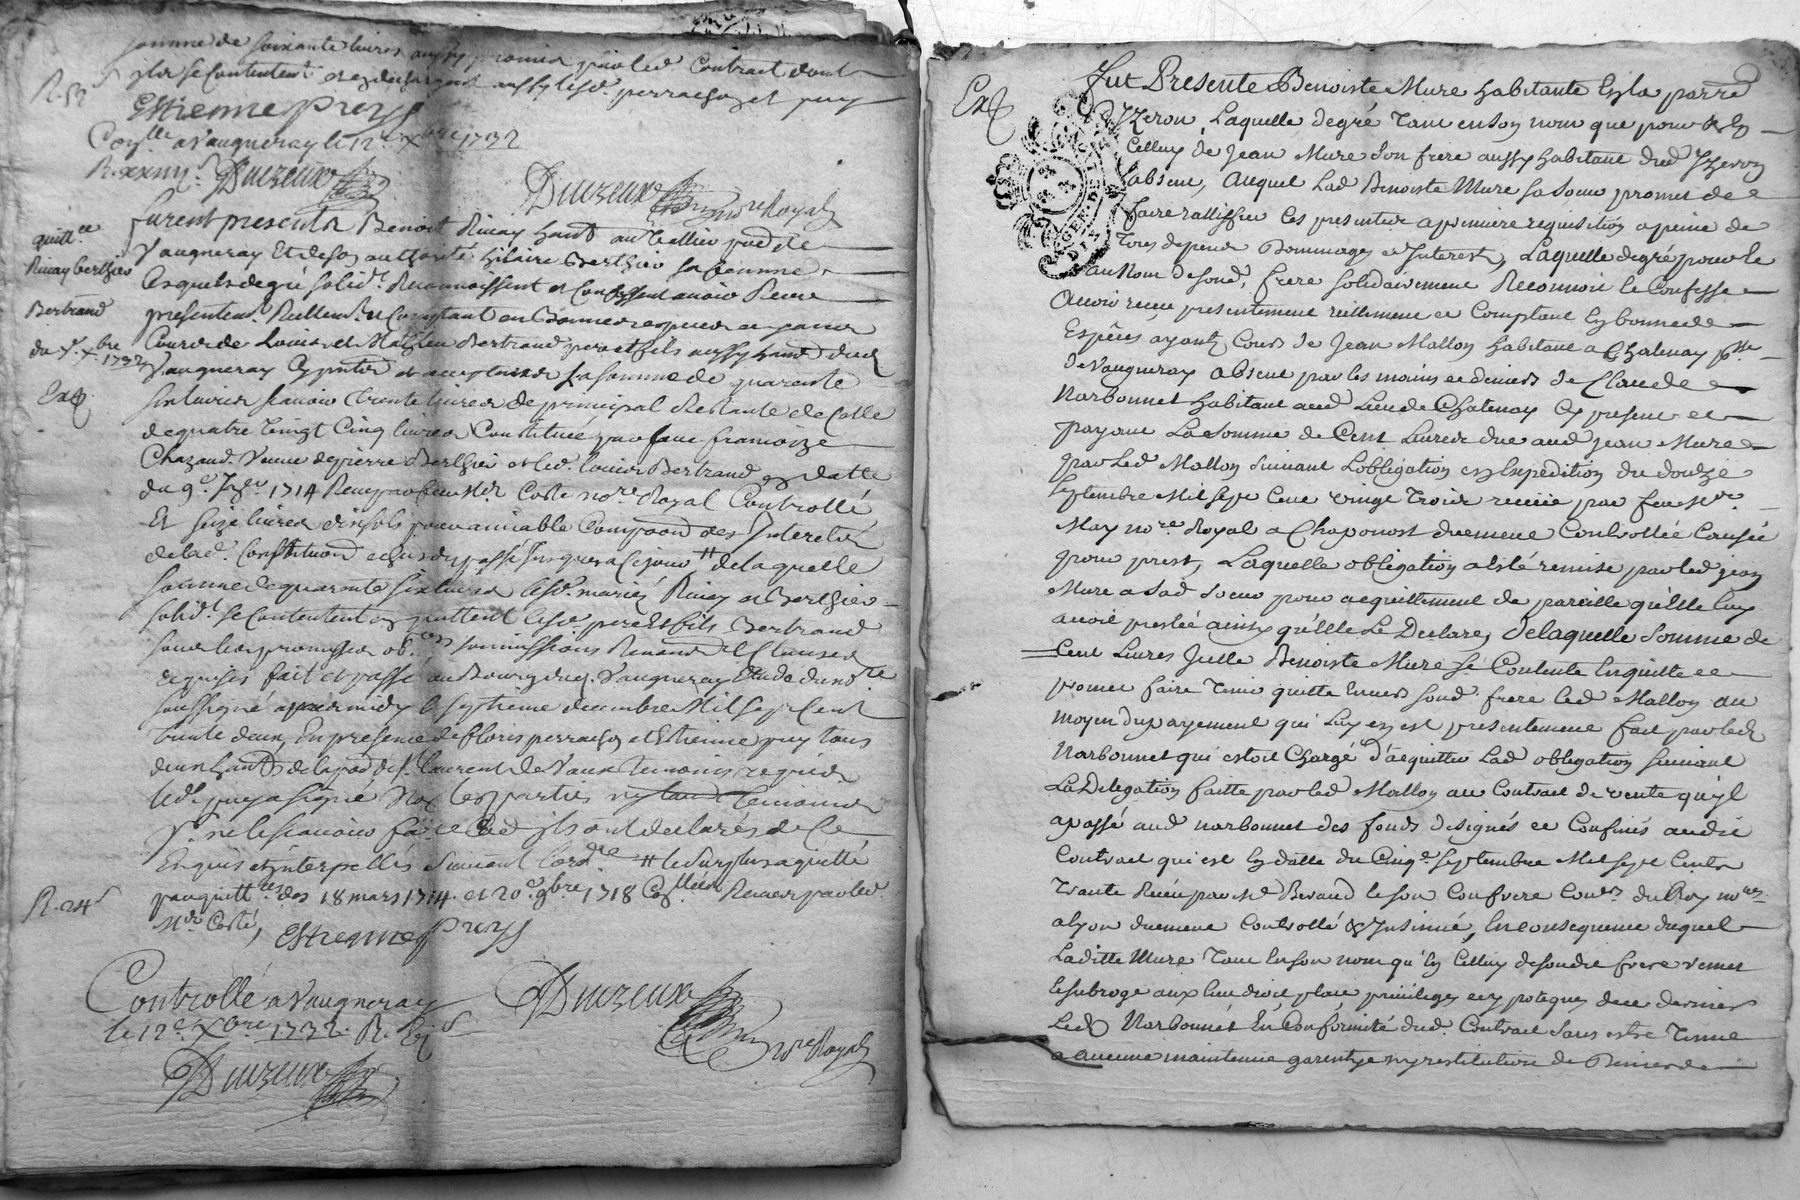 somme de soixante livres aussy promis par led. Contract dont
ilz se Contentent et en dechargent aussy lesd. perrachon et puy
R. 52ˢ
Estienne Puys
Con.ˡˡᵉ a Vaugneray le 12ᵉ Xbre 1732
R. xxiiijˢ Duczeux
Duczeux noʳᵉ Royal
quittᶜᵉ
Rivay berthier
Bertrand
du 7. Xbre 1732
Exᵖ
furent presents Benoit Rivay habitˢ au Tallier parr. de
Vaugneray Et de son authorité hilaire Berthier sa femme
lesquels de gré solidᵗ. Reconnoissent et Confessent avoir Receu
presentemᵗ. Reellemᵗ. et Comptant en Bonnes especes ayants
Cours de Louis et Mathieu Bertrand pere et fils aussy habitˢ dud.
Vaugneray Cy presents et acceptants La somme de quarente
six livres scavoir trente livres de principal Restante de Celle
de quatre Vingt Cinq livres Constituée par feue francoize
Chazaud Veuve de pierre Berthier et led. louis Bertrand en datte
du 9ᵉ 1714 Receu par feu Mᵉ Coste noʳᵉ Royal Controllé
Et seize livres dix sols pour amiable Compoᵒⁿ des Interets
de lad. Constitution echus du passé Jusques a ce jour # de laquelle
somme de quarante six livres lesd. mariés Rivay et Berthier
solidᵗ. se Contentent en quittent lesd. pere Et fils Bertrand
sous les promesses obᵒⁿˢ soumissions Renonᵒⁿˢ & Clauses
requises fait et passé au Bourg dud. Vaugneray Etude du noʳᵉ
soussigné apres midy le septieme decembre Mil sept Cent
trente deux, En presence de floris perrachon et Estienne puy tous
deux habitˢ de la parr. de Sᵗ. laurent de Vaux Temoins requis
led. puy a signé Non les parties ny l'autre temoin
pᵣ. ne le scavoir faire Comme ils ont declarés de Ce
Enquis et interpellés Suivant l'ordᶜᵉ # le surplus aquitté
par quittᶜᵉˢ des 18 mars 1714 et 20ᵉ 9bre 1718 Con.ˡˡᵉᵉˢ Receues par led.
Mᵉ Coste,
R. 24ˢ
Estienne Puys
Controllé a Vaugneray
le 12ᵉ Xbre 1732 R.
Duczeux
Duczeux noʳᵉ Royal
Exᵖ
Fut Presente Benoiste Mure habitante En la parre
D'Yzeron, Laquelle de gré Tant en son nom que pour & En
Celluy de Jean Mure son frere aussy habitant dud. Yzeron
absent, Auquel Lad. Benoiste Mure sa soeur promet de
faire rattiffier Ces presentes a premiere requisition a peine de
Tous depens Dommages et Interests, Laquelle de gré pour le
au Nom de sond. frere solidairement Reconnoit et Confesse
Avoir receu presentement reellement et Comptant En bonnes
Espèces ayants Cours de Jean Mallon habitant a Chatenay psse
de Vaugneray absent par les mains et deniers de Claude
Narbonnet habitant aud. Lieu de Chatenay Cy present et
payant La somme de Cent Livres due aud. Jean Mure
par led. Mallon Suivant L'obligation En Expedition du douze
Septembre Mil sept Cent vingt Trois receüe par feu Mʳᵉ
May noʳᵉ Royal a Chaponost duement Controllée Causée
pour prest, Laquelle obligation a Esté remise par led. Jean
Mure a Sad. Soeur pour acquittement de pareille qu'Elle luy
avoit prestée ainsy qu'Elle Le Declare, De laquelle Somme de
Cent Livres Jcelle Benoiste Mure Se Contente En quitte et
promet faire Tenir quitte Envers sond. frere led. Mallon au
moyen du payement qui Luy en est presentement fait par led.
Narbonnet qui estoit Chargé d'acquitter Lad. obligation suivant
La Delegation faitte par led. Mallon au Contract de vente qu'il
a passé aud. narbonnet des fonds designés et Confinés audit
Contract qui est En datte du Cinqᵉ Septembre Mil sept Cents
Trante Receu par Mᵉ Beraud le son Confrere Conˢ du Roy noʳᵉˢ
a Lyon duement Controllé & Insinué, En consequence duquel
Laditte Mure Tant En son nom qu'En Celluy de sondit frere remet
& subroge aux lieu droit place privileges et hypoteques de ce dernier
Led. Narbonnet En Conformité dud. Contract sans estre Tenue
a aucune maintenue garentye ny restitution de Deniers de